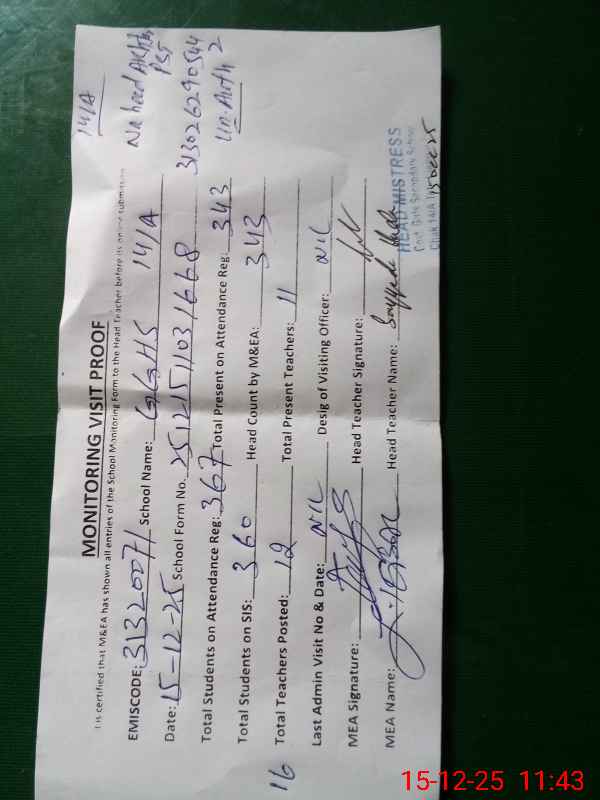 14/A
MONITORING VISIT PROOF
t is certified that M&EA has shown all entries of the School Monitoring Form to the Head Teacher before its online submission
EMISCODE: 31320071 School Name: GGHS 141/A
Date: 15-12-25 School Form No. 251215110316668
Total Students on Attendance Reg: 367 Total Present on Attendance Reg: 343
Total Students on SIS: 360 Head Count by M&EA: 343
Total Teachers Posted: 12 Total Present Teachers: 11
Last Admin Visit No & Date: NIL Desig of Visiting Officer: NIL
MEA Signature: Head Teacher Signature:
MEA Name: Head Teacher Name:
PST
31302629054 4
2
16
HEAD MISTRESS
Secondary School
15 Dec 25
15-12-25 11:43